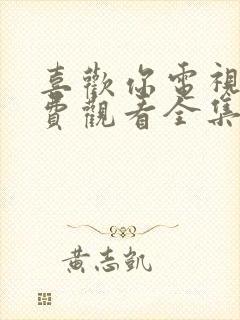 喜歡你電視
費觀看全集
黃志凱